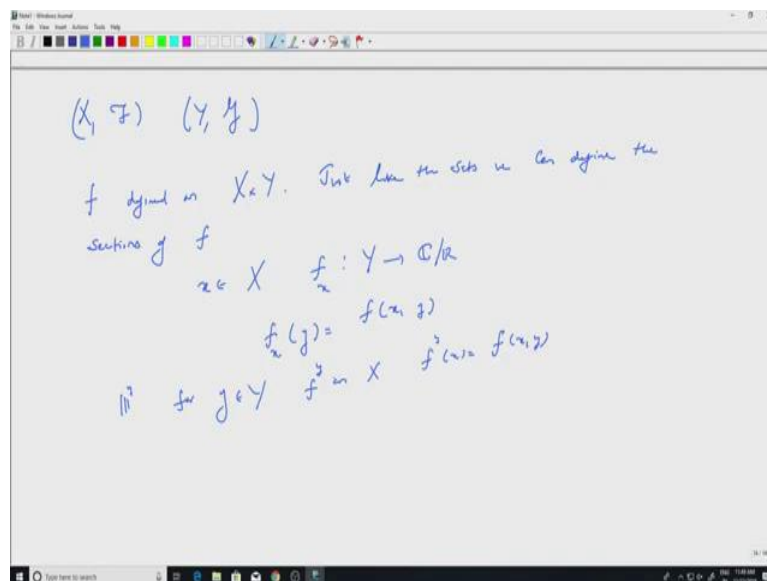 Note1 - Windows Journal
File Edit View Insert Actions Tools Help
(X, F) (Y, G)
f defined on X×Y. Just like the sets we can define the
sections of f
x ∈ X fₓ : Y → ℂ/ℝ
fₓ(y) = f(x, y)
|||ʸ for y ∈ Y fʸ on X fʸ(x) = f(x, y)
Type here to search
ENG 11:48 AM